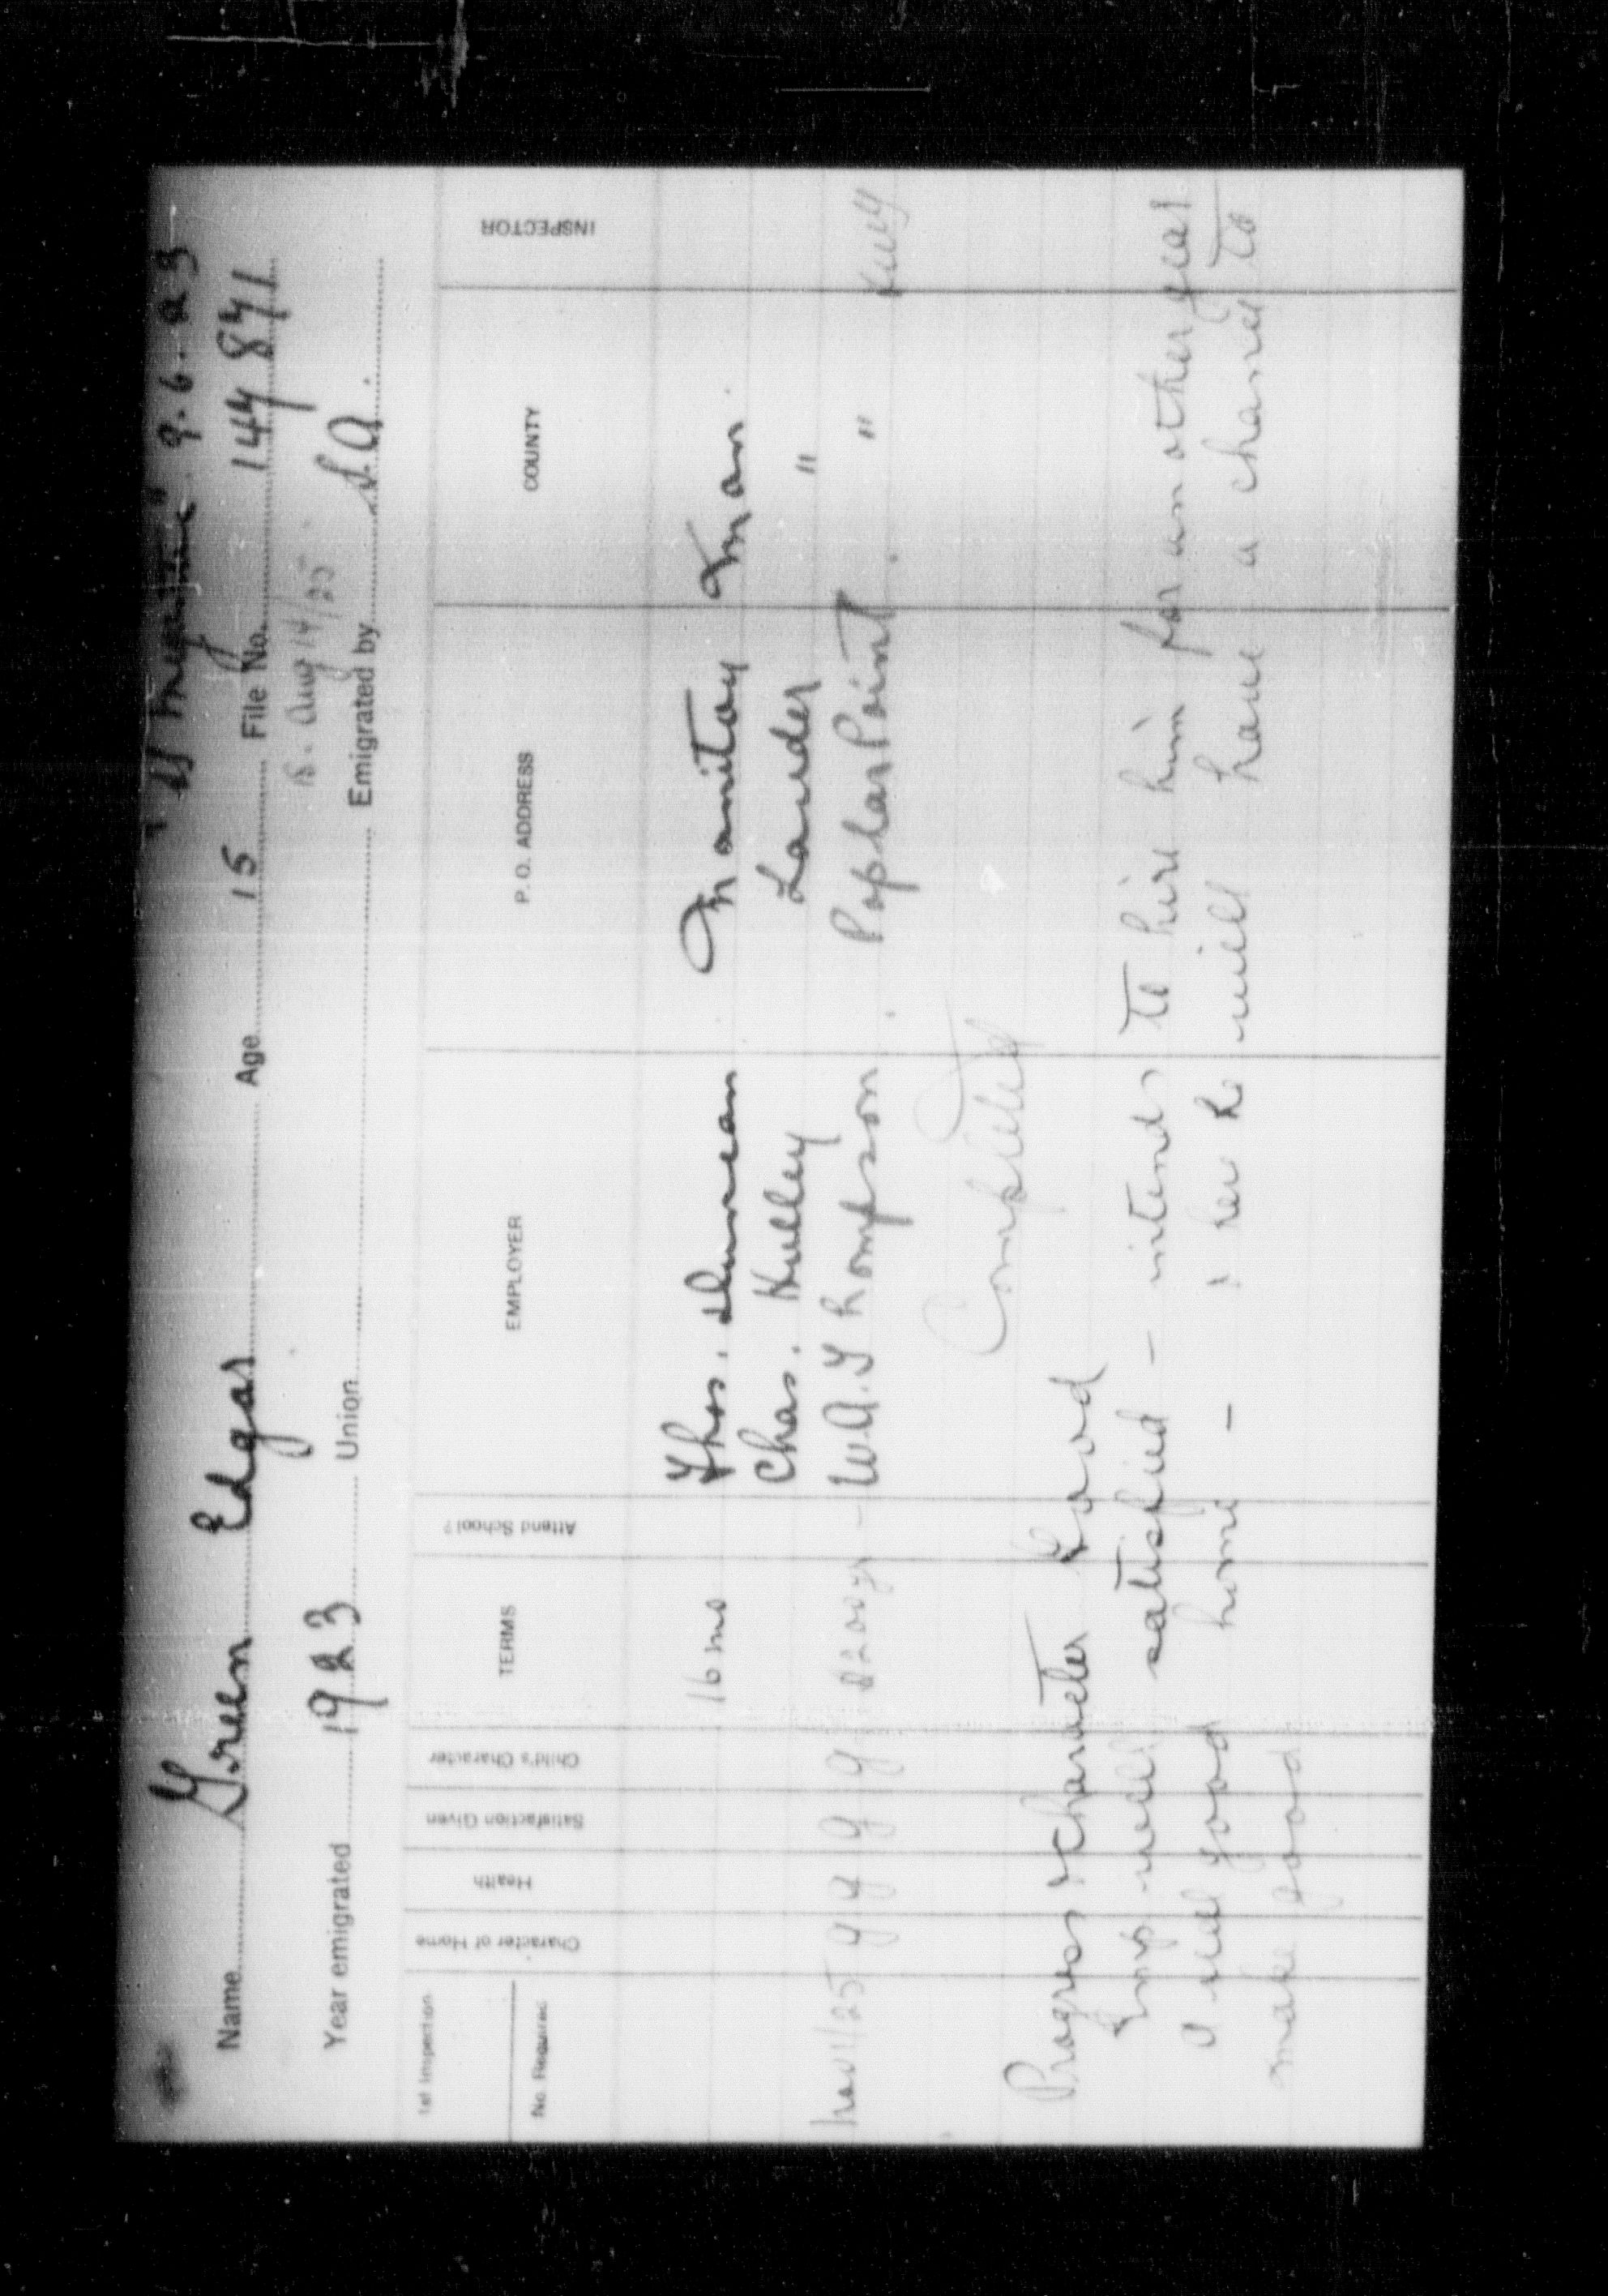 9.6.23
Name Green Edgar Age 15 File No. 147 871
18. Aug 14/25
Year emigrated 1923 Union Emigrated by S.A.
1st Inspection No. Required Character of Home Health Satisfaction Given Child's Character TERMS Attend School? EMPLOYER P. O. ADDRESS COUNTY INSPECTOR
16 mo Thos. Duncan Manitou Man.
Chas. Kelley Lauder "
Nov 11/25 g g g g $200 yr - W.A. Thompson. Poplar Point. "
Completed
Progress & Character Good
Emp well satisfied - intends to hire him for another year
A real good home - he will have a chance to
make good